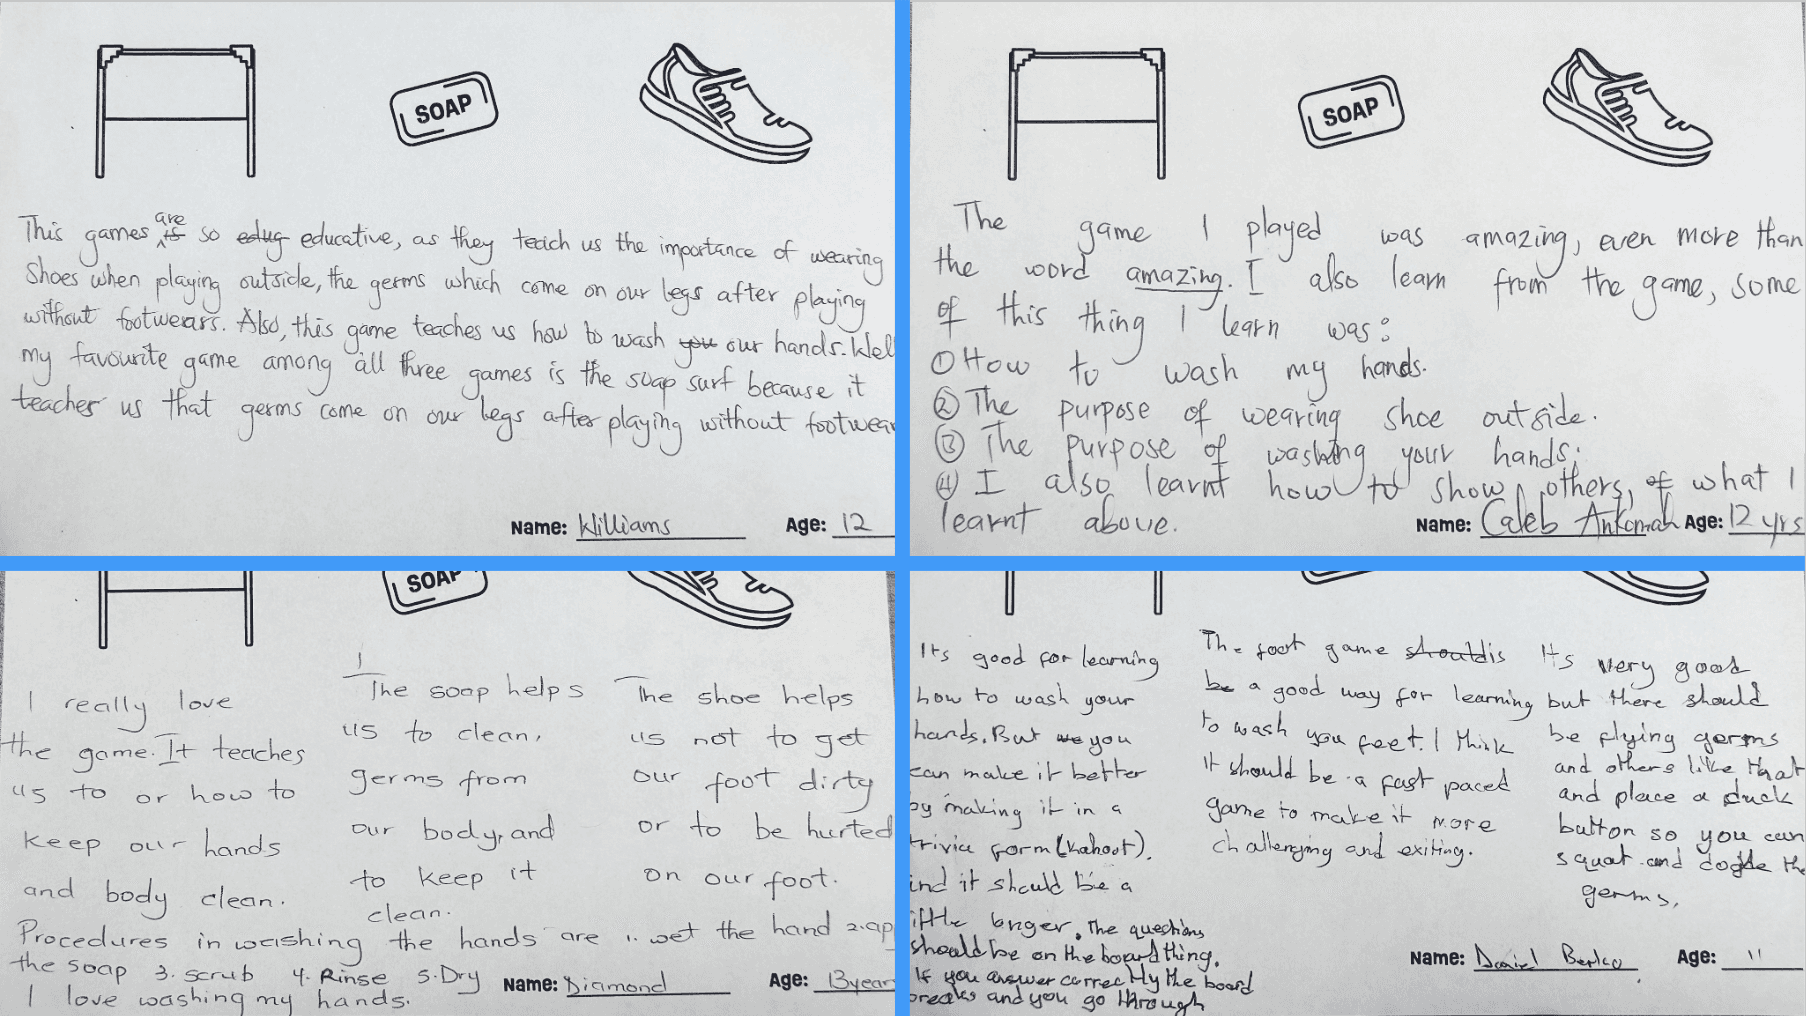 SOAP
This games are is so edug educative, as they teach us the importance of wearing
Shoes when playing outside, the germs which come on our legs after playing
without footwears. Also, this game teaches us how to wash you our hands. Wel
my favourite game among all three games is the soap surf because it
teaches us that germs come on our legs after playing without footwear
Name: Williams Age: 12
SOAP
The game I played was amazing, even more than
the word amazing. I also learn from the game, some
of this thing I learn was:
① How to wash my hands.
② The purpose of wearing shoe outside.
③ The purpose of washing your hands.
④ I also learnt how to show others, of what I
learnt above.
Name: Caleb Ankomah Age: 12 yrs
SOAP
I really love
the game. It teaches
us to or how to
keep our hands
and body clean.
The soap helps
us to clean,
germs from
our body, and
to keep it
clean.
The shoe helps
us not to get
our foot dirty
or to be hurted
on our foot.
Procedures in washing the hands are 1. wet the hand 2. ap
the soap 3. scrub 4. Rinse 5. Dry
I love washing my hands.
Name: Diamond Age: 13 year
Its good for learning
how to wash your
hands. But we you
can make it better
by making it in a
trivia form (kahoot).
and it should be a
little longer. The questions
should be on the board thing.
If you answer correctly the board
breaks and you go through
The foot game should is
be a good way for learning
to wash you feet. I think
it should be a fast paced
game to make it more
challenging and exiting.
Its very good
but there should
be flying germs
and others like that
and place a duck
button so you can
squat and dogde the
germs.
Name: Daniel Age: 11